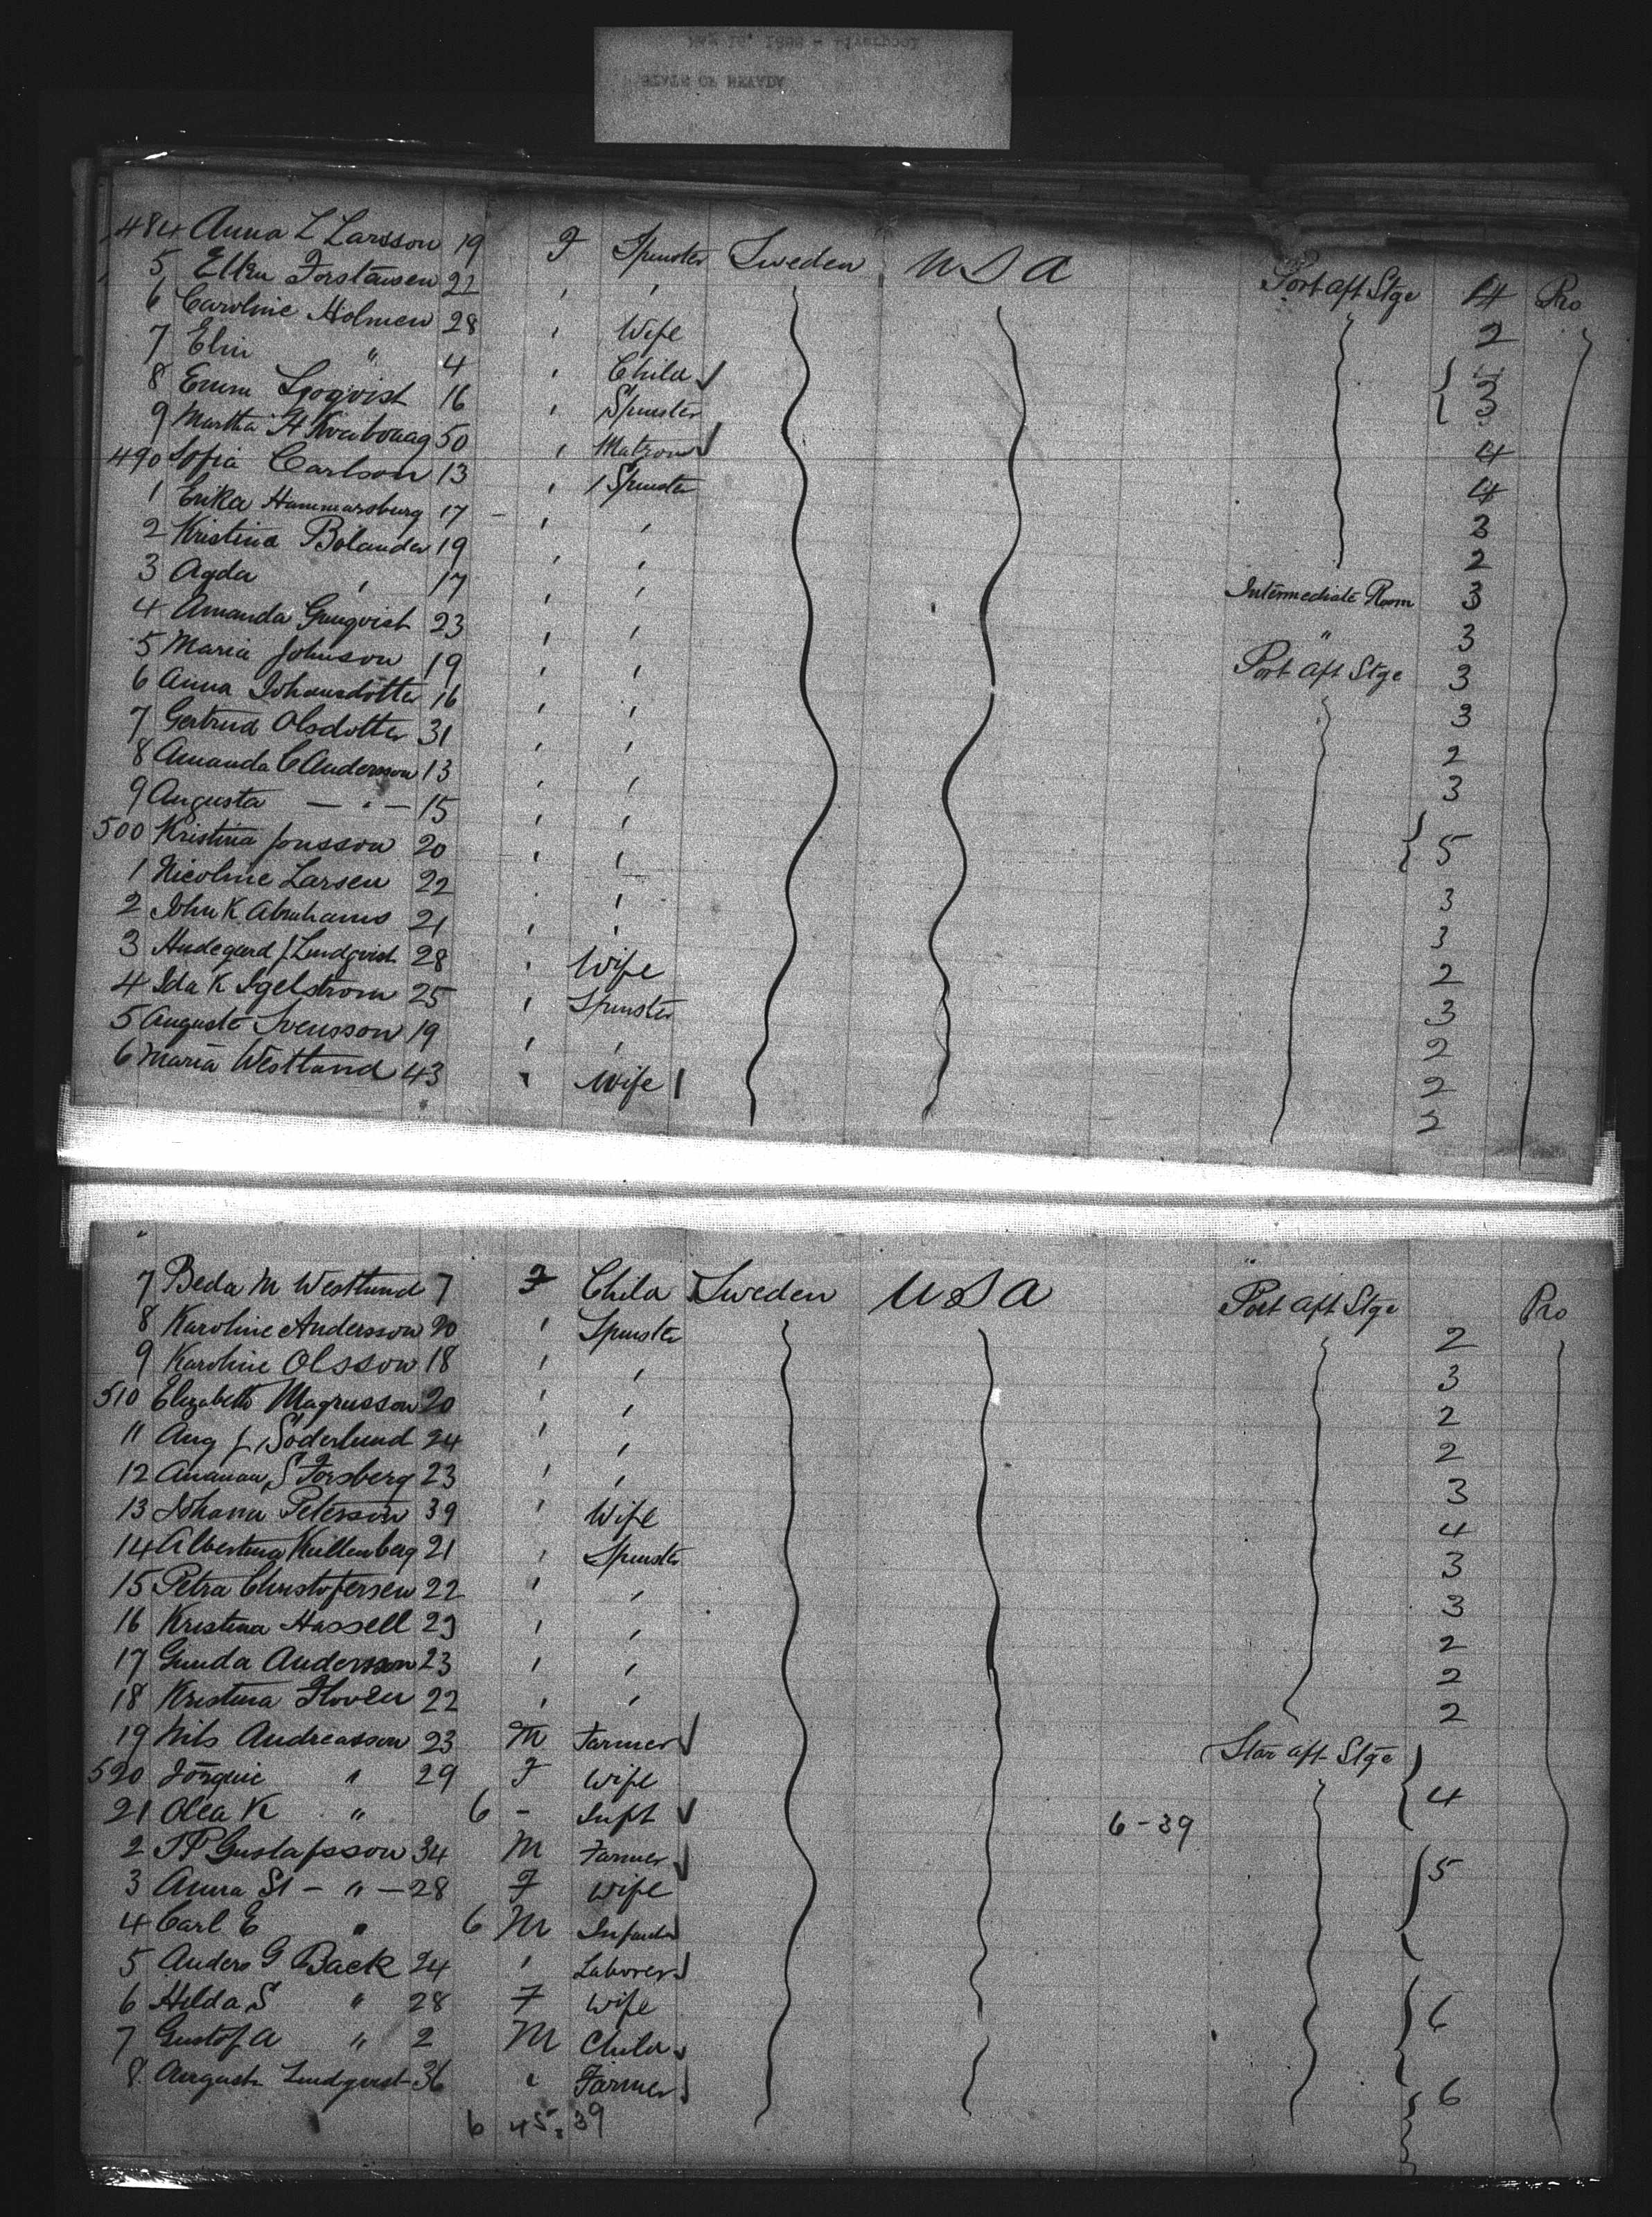 484 Anna L Larsson 19 F Spinster Sweden U S A Port aft Stge 14 Pro
5 Forstausen 22 ' ' 2
6 Caroline Holmen 28 ' Wife
7 Elin " 4 ' Child 3
8 Emm 16 ' Spinster
9 Martha H 50 ' Matron 4
490 Sofia Carlson 13 ' Spinster 4
1 Erika Hammarsburg 17 - ' ' 3
2 Kristina Bolander 19 ' ' 2
3 Agda ' 17 ' ' Intermediate Room 3
4 Amanda 23 ' ' " 3
5 Maria Johnson 19 ' ' Port aft Stge 3
6 Anna Johansdotter 16 ' ' 3
7 Gertrud Olsdotter 31 ' ' 2
8 Amanda C Andersson 13 ' ' 3
9 Augusta — " — 15 ' '
500 Kristina Jonsson 20 ' ' 5
1 Nicoline Larsen 22 ' ' 3
2 John K Abrahams 21 ' ' 3
3 J Lindqvist 28 ' Wife 2
4 Ida K Igelstrom 25 ' Spinster 3
5 Augusta Svensson 19 ' ' 2
6 Maria Westlund 43 ' Wife 2
2
7 Beda M Westlund 7 F Child Sweden U S A Port aft Stge Pro
8 Karoline Andersson 20 ' Spinster 2
9 Karoline Olsson 18 ' ' 3
510 Elizabeth Magnusson 20 ' ' 2
11 Aug J Söderlund 24 ' ' 2
12 S Forsberg 23 ' ' 3
13 Johanna Peterson 39 ' Wife 4
14 Albertina Kullenberg 21 ' Spinster 3
15 Petra Christofersen 22 ' ' 3
16 Kristina Hassell 23 ' ' 2
17 Gunda Andersson 23 ' ' 2
18 Kristina 22 ' ' 2
19 Nils Andreasson 23 M Farmer Star aft Stge
520 " 29 F Wife 4
21 Olea K " 6 - Inft 6-39
2 Gustafsson 34 M Farmer 5
3 Anna St - " - 28 F Wife
4 Carl E " 6 M Infant
5 Anders G Back 24 ' Laborer
6 Hilda S " 28 F Wife 6
7 Gustaf A " 2 M Child
8 August Lindqvist 36 ' Farmer 6
6 45. 39